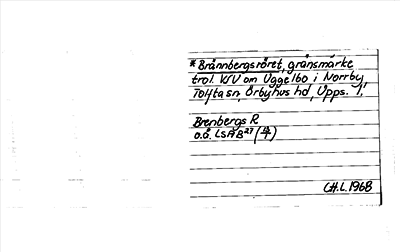 * Brännbergsröret, gränsmärke
trol. VSV om Uggelbo i Norrby,
Tolfta sn, Örbyhus hd, Upps. l,
Brenbergs R
o.å. LSA B27 (4/7)
C.H.L. 1968